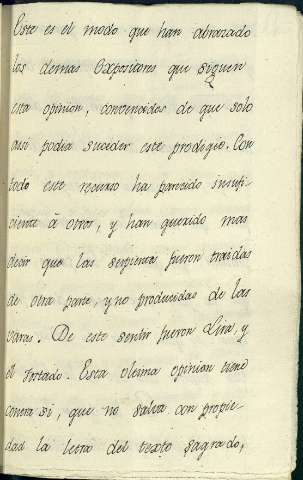 Este es el modo que han abrazado
los demas Expositores que siguen
esta opinion, convencidos de que solo
assi podia suceder este prodigio. Con
todo este recurso ha parecido insufi-
ciente à otros, y han querido mas
decir que las serpientes fueron traidas
de otra parte, y no producidas de las
varas. De este sentir fueron Lira, y
el Tostado. Esta ultima opinion tiene
contra si, que no salva con propie-
dad la letra del texto sagrado,